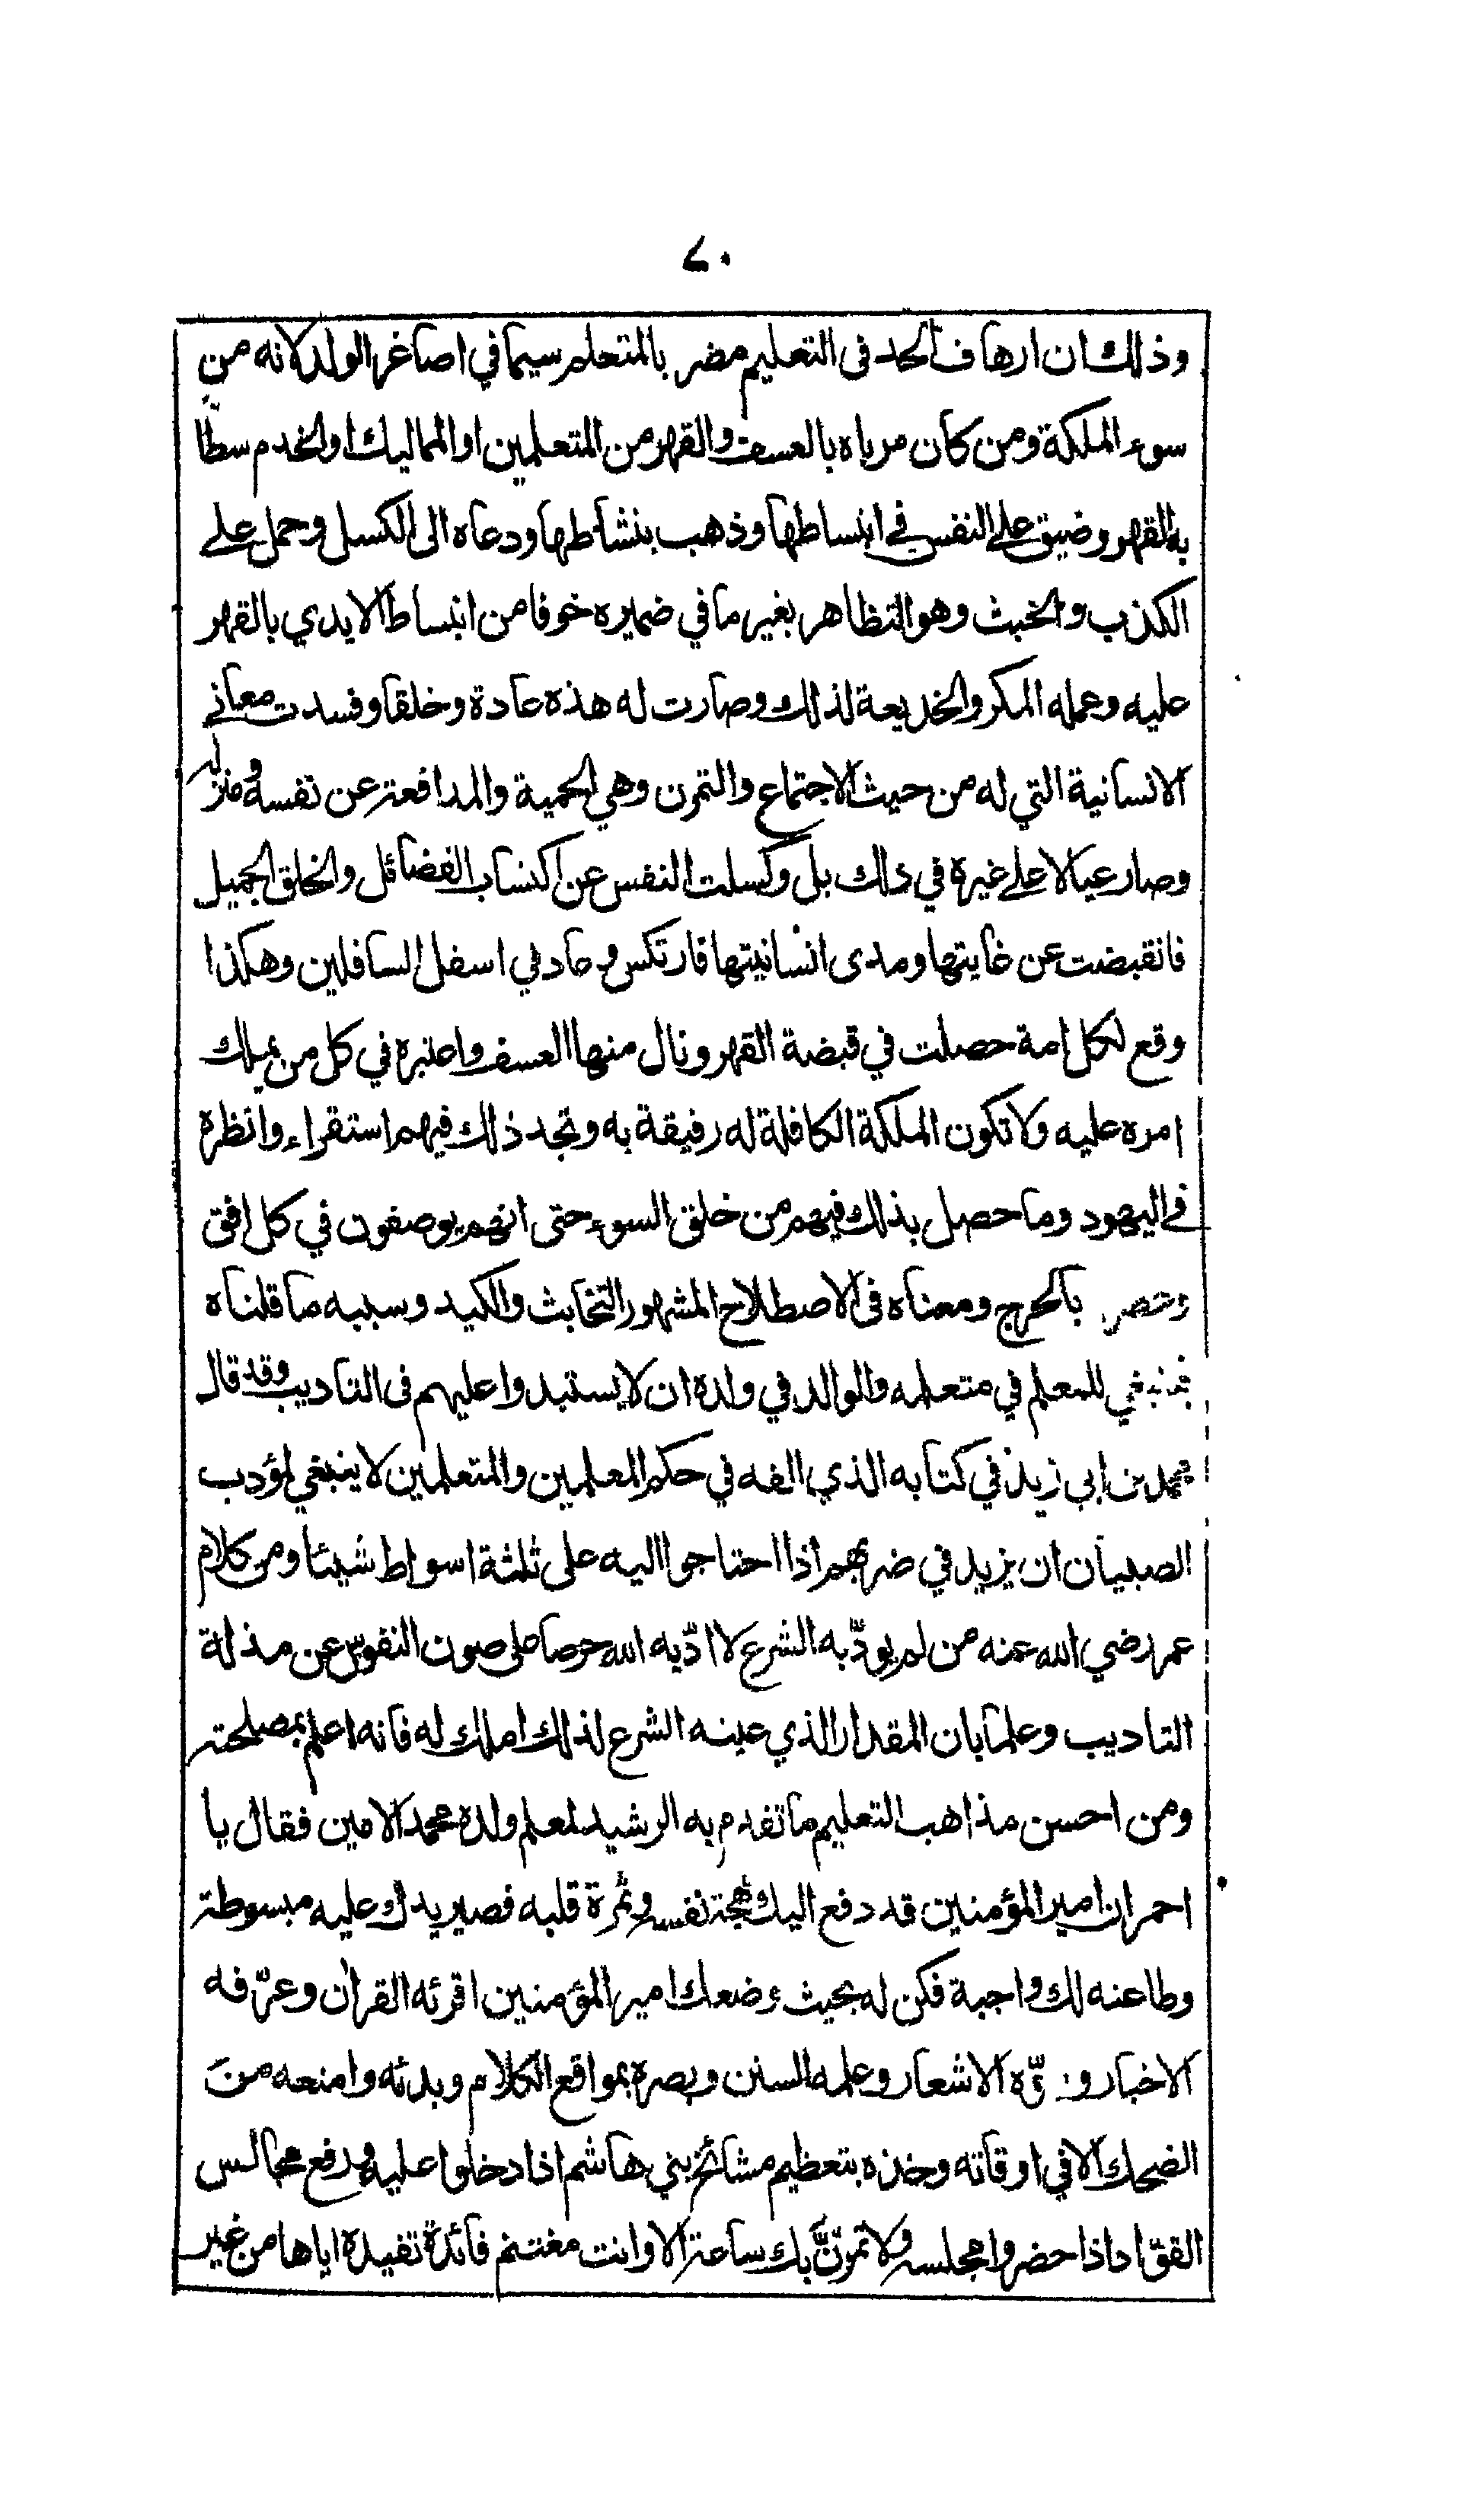 ٧٠
وذلك ان ارهاف الحد فى التعليم مضر بالمتعلم سيما في اصاغر الولد لانه من
سوء الملكة ومن كان مرباه بالعسف والقهر من المتعلمين او المماليك او الخدم سطا
به القهر وضيق على النفس في انبساطها وذهب بنشاطها ودعاه الى الكسل وحمل على
الكذب والخبث وهو التظاهر بغير ما في ضميره خوفا من انبساط الايدي بالقهر
عليه وعمله المكر والخديعة لذلك وصارت له هذه عادة وخلقا وفسدت معاني
الانسانية التي له من حيث الاجتماع والتمرن وهي الحمية والمدافعة عن نفسه ومنزله
وصار عيالا على غيره في ذلك بل وكسلت النفس عن اكتساب الفضائل والخلق الجميل
فانقبضت عن غايتها ومدى انسانيتها فارتكس وعاد في اسفل السافلين وهكذا
وقع لكل امة حصلت في قبضة القهر ونال منها العسف واعتبره في كل من يملك
امره عليه ولا تكون الملكة الكافلة له رفيقة به وتجد ذلك فيهم استقراء وانظره
في اليهود وما حصل بذلك فيهم من خلق السوء حتى انهم يوصفون في كل افق
وعصر بالحرج ومعناه فى الاصطلاح المشهور التخابث والكيد وسببه ما قلناه
فينبغي للمعلم في متعلمه والوالد في ولده ان لا يستبدوا عليهم فى التاديب وقد قال
محمد بن ابي زيد في كتابه الذي الفه في حكم المعلمين والمتعلمين لا ينبغي لمؤدب
الصبيان ان يزيد في ضربهم اذا احتاجوا اليه على ثلثة اسواط شيئا ومن كلام
عمر رضي الله عنه من لم يودّبه الشرع لا ادّبه الله حرصا على صون النفوس عن مذلة
التاديب وعلما بان المقدار الذي عينه الشرع لذلك املك له فانه اعلم بمصلحته
ومن احسن مذاهب التعليم ما تقدم به الرشيد لمعلم ولده محمد الامين فقال يا
احمر ان امير المؤمنين قد دفع اليك مهجة نفسه وثمرة قلبه فصير يدك عليه مبسوطة
وطاعته لك واجبة فكن له بحيث وضعك امير المؤمنين اقرئه القران وعرّفه
الاخبار وروّه الاشعار وعلمه السنن وبصره بمواقع الكلام وبدئه وامنعه من
الضحك الا في اوقاته وخذه بتعظيم مشائخ بني هاشم اذا دخلوا عليه ورفع مجالس
القوّاد اذا حضروا مجلسه ولا تمرّنّ بك ساعة الا وانت مغتنم فائدة تفيده اياها من غير